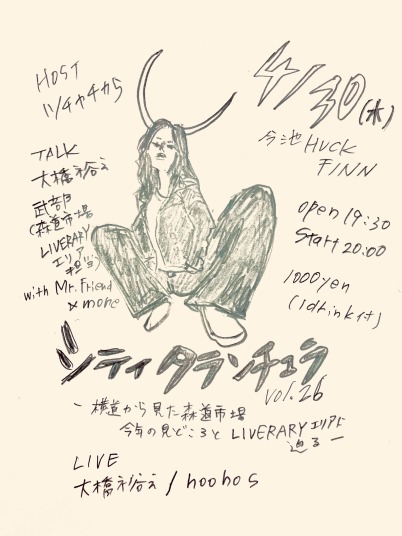 HOST
ツチヤチカら
4/30(木)
今池HUCK
FINN
TALK
大橋裕之
武部
(森道市場
LIVERARY
エリア
担当)
with Mr.Friend
&more
open 19:30
Start 20:00
1000yen
(1drink付)
シティタランチュラ
vol.26
ー横道から見た森道市場
今年の見どころとLIVERARYエリアに
迫るー
LIVE
大橋裕之/hoohos